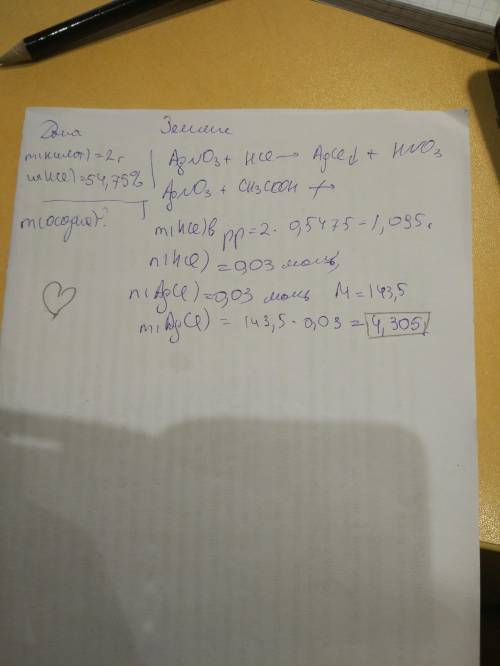 Дано
m(кислот) = 2 г
ω(HCl) = 54,75%
m(осадка)-?
AgNO3 + HCl → AgCl↓ + HNO3
AgNO3 + CH3COOH
m(HCl) в рр = 2 · 0,5475 = 1,095 г
n(HCl) = 0,03 моль
n(AgCl) = 0,03 моль M = 143,5
m(AgCl) = 143,5 · 0,03 = 4,305